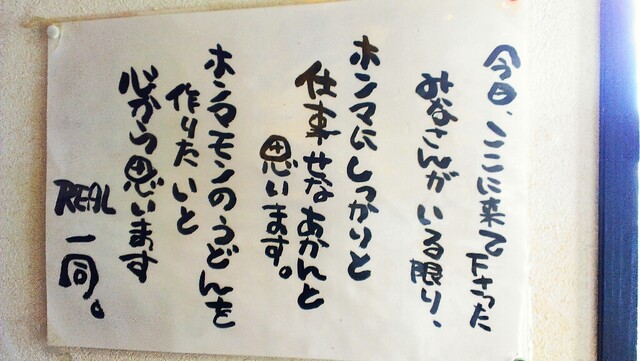 今日、ここに来て下さった
みなさんがいる限り、
ホンマにしっかりと
仕事せなあかんと
思います。
ホンマモンのうどんを
作りたいと
心から思います
REAL一同。